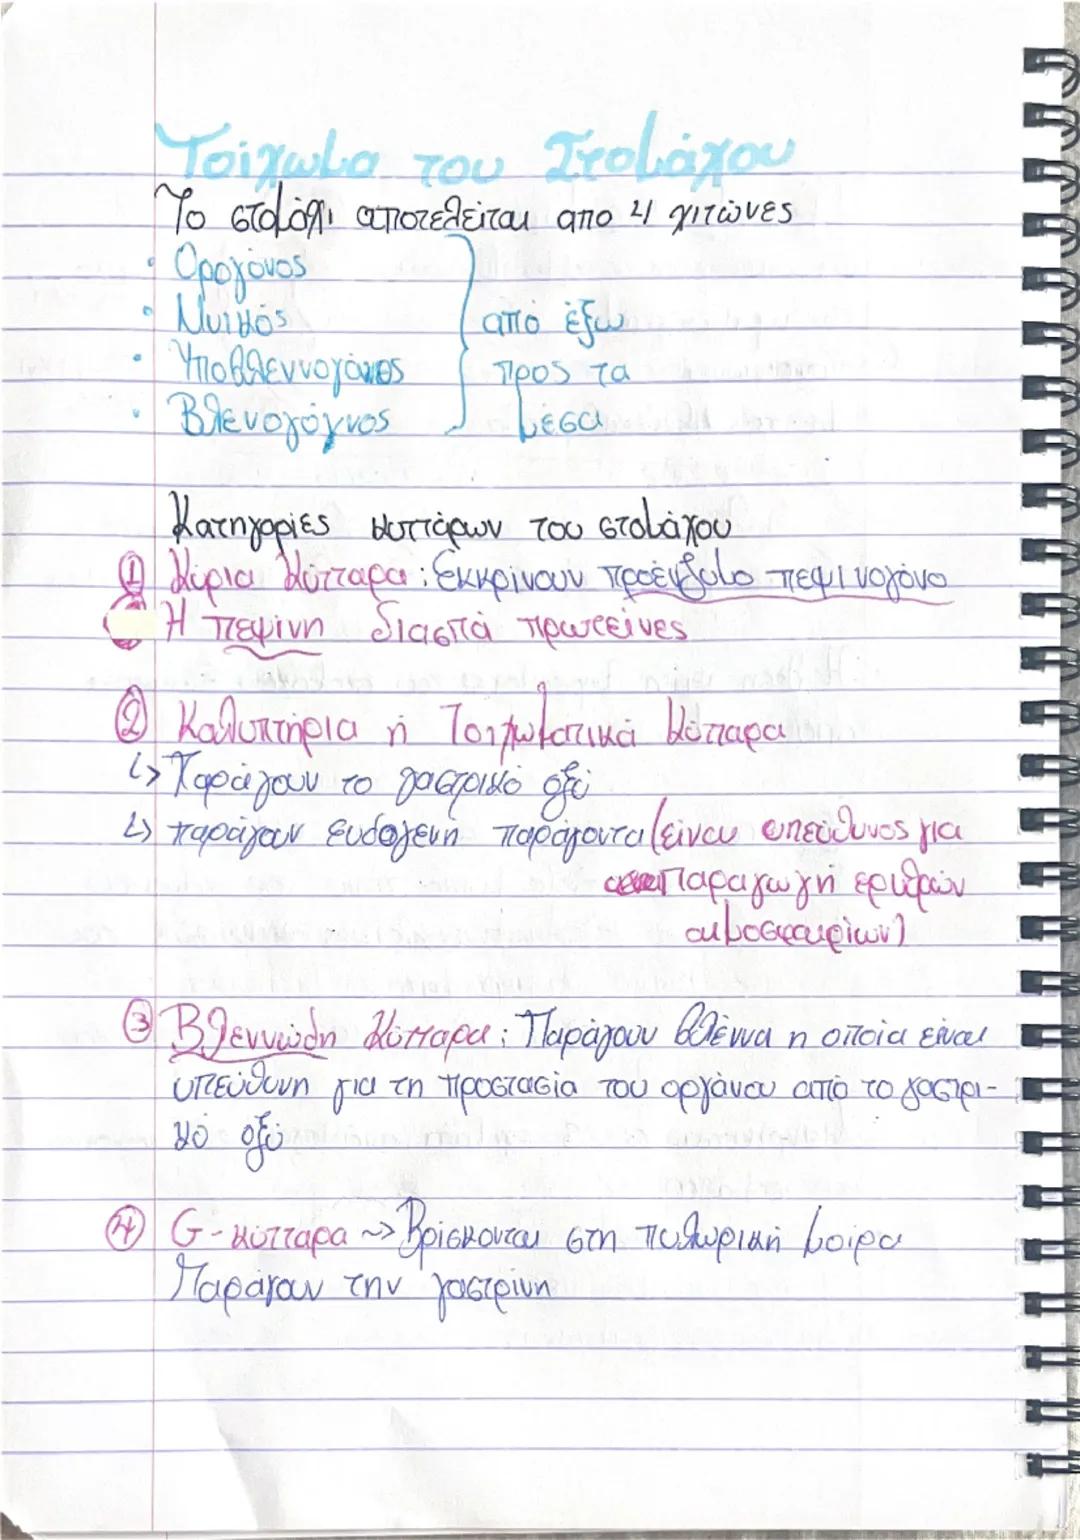 Τοίχωμα του Στομάχου
Το στομάχι αποτελείται απο 4 χιτώνες
• Ορογόνος
• Μυικός
• Υποβλεννογόνος
• Βλενογόγνος
από έξω
προς τα
μέσα
Κατηγορίες κυττάρων του στομάχου
① Κύρια Κύτταρα: Εκκρίνουν προένζυμο πεψινογόνο
Η πεψίνη διασπά πρωτεΐνες
② Καλυπτήρια ή Τοιχωματικά κύτταρα
↳ Παράγουν το γαστρικό οξύ
↳ παράγουν ενδογενή παράγοντα (είναι υπεύθυνος για
παραγωγή ερυθρών
αιμοσφαιρίων)
③ Βλεννώδη Κύτταρα: Παράγουν βλέννα η οποία είναι
υπεύθυνη για τη προστασία του οργάνου από το γαστρι-
κό οξύ
④ G-κύτταρα ~> Βρίσκονται στη πυλωρική μοίρα
Παράγουν την γαστρίνη